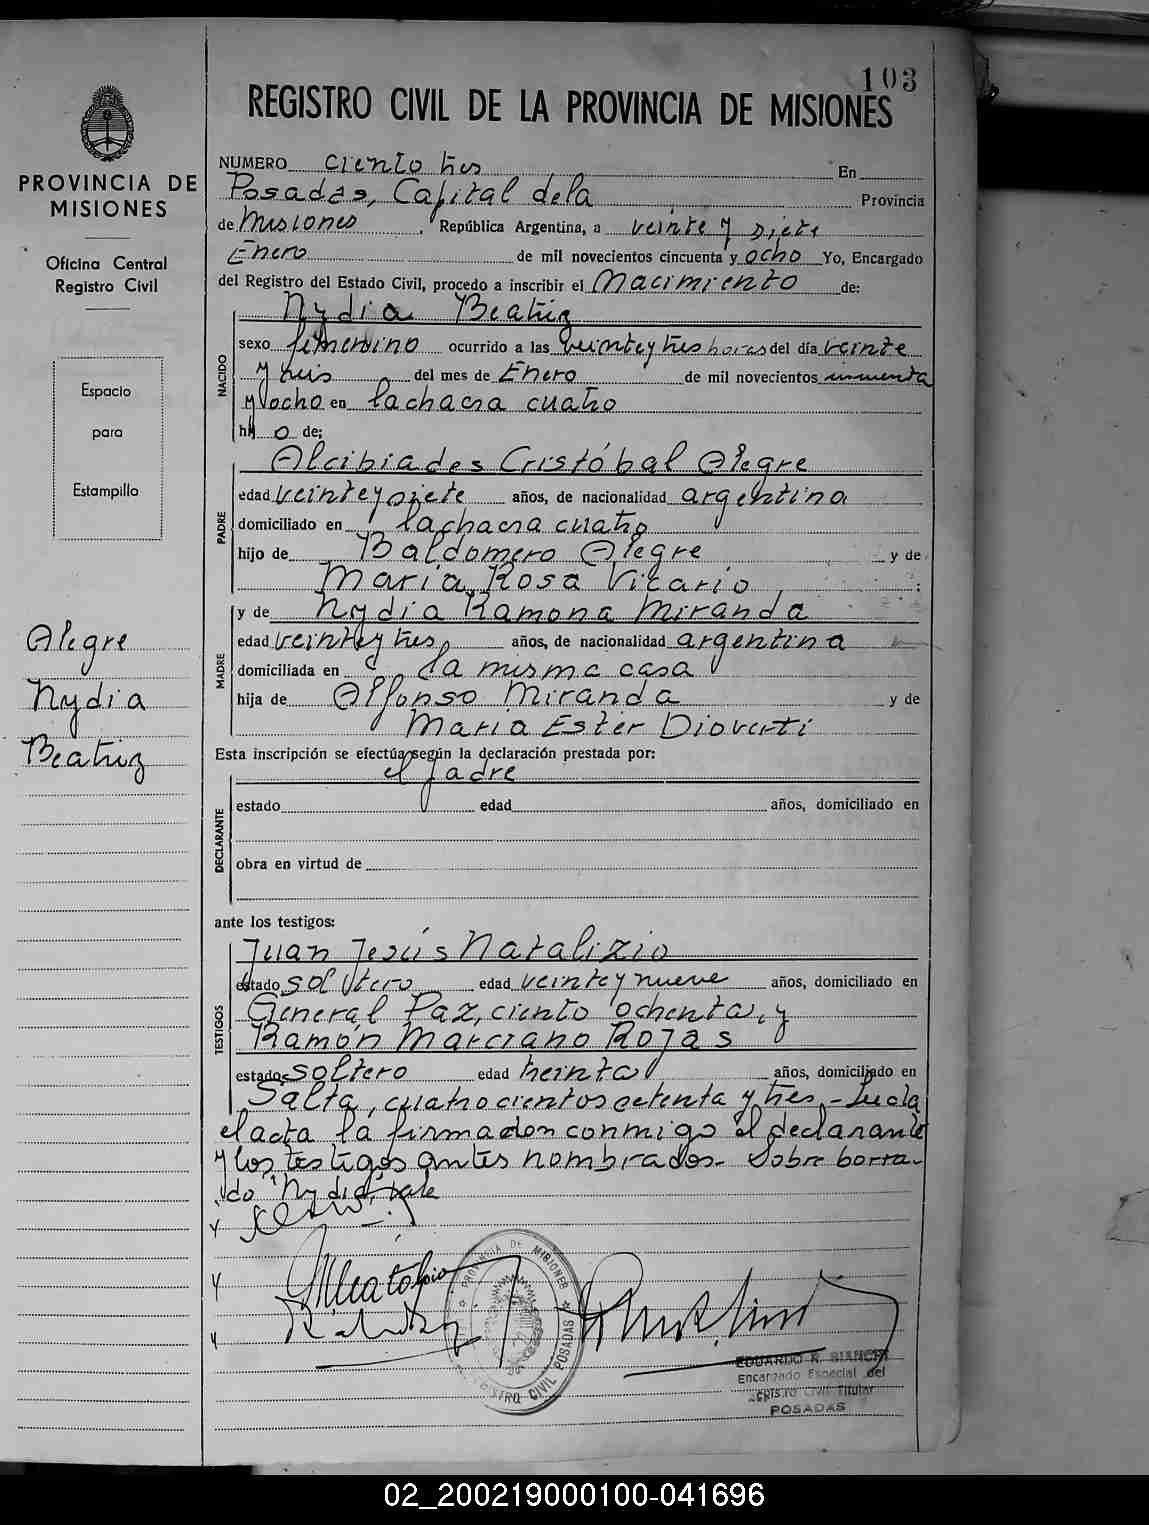 103
REGISTRO CIVIL DE LA PROVINCIA DE MISIONES
PROVINCIA DE
MISIONES
Oficina Central
Registro Civil
Espacio
para
Estampilla
Alegre
Nydia
Beatriz
NUMERO ciento tres En
Posadas, Capital dela Provincia
de Misiones, República Argentina, a veinte y siete
Enero de mil novecientos cincuenta y ocho Yo, Encargado
del Registro del Estado Civil, procedo a inscribir el Nacimiento de:
Nydia Beatriz
NACIDO
sexo femenino ocurrido a las veinte y tres horas del día veinte
y seis del mes de Enero de mil novecientos cincuenta
y ocho en la chacra cuatro
hij o de:
PADRE
Alcibiades Cristóbal Alegre
edad veinte y siete años, de nacionalidad argentina
domiciliado en la chacra cuatro
hijo de Baldomero Alegre y de
Maria Rosa Vicario ;
MADRE
y de Nydia Ramona Miranda
edad veinte y tres años, de nacionalidad argentina
domiciliada en la misma casa
hija de Alfonso Miranda y de
Maria Ester Dioverti
Esta inscripción se efectúa según la declaración prestada por:
el padre
DECLARANTE
estado edad años, domiciliado en
obra en virtud de
ante los testigos:
TESTIGOS
Juan Jesús Natalizio
estado soltero edad veinte y nueve años, domiciliado en
General Paz, ciento ochenta, y
Ramón Marciano Rojas
estado soltero edad treinta años, domiciliado en
Salta, cuatrocientos setenta y tres - Leida
el acta la firmaron conmigo el declarante
y los testigos antes nombrados - Sobre borra-
do "Nydia" vale
PROVINCIA DE MISIONES
REGISTRO CIVIL POSADAS
EDUARDO R. BIANCHI
Encargado Especial del
Registro Civil Titular
POSADAS
02_200219000100-041696